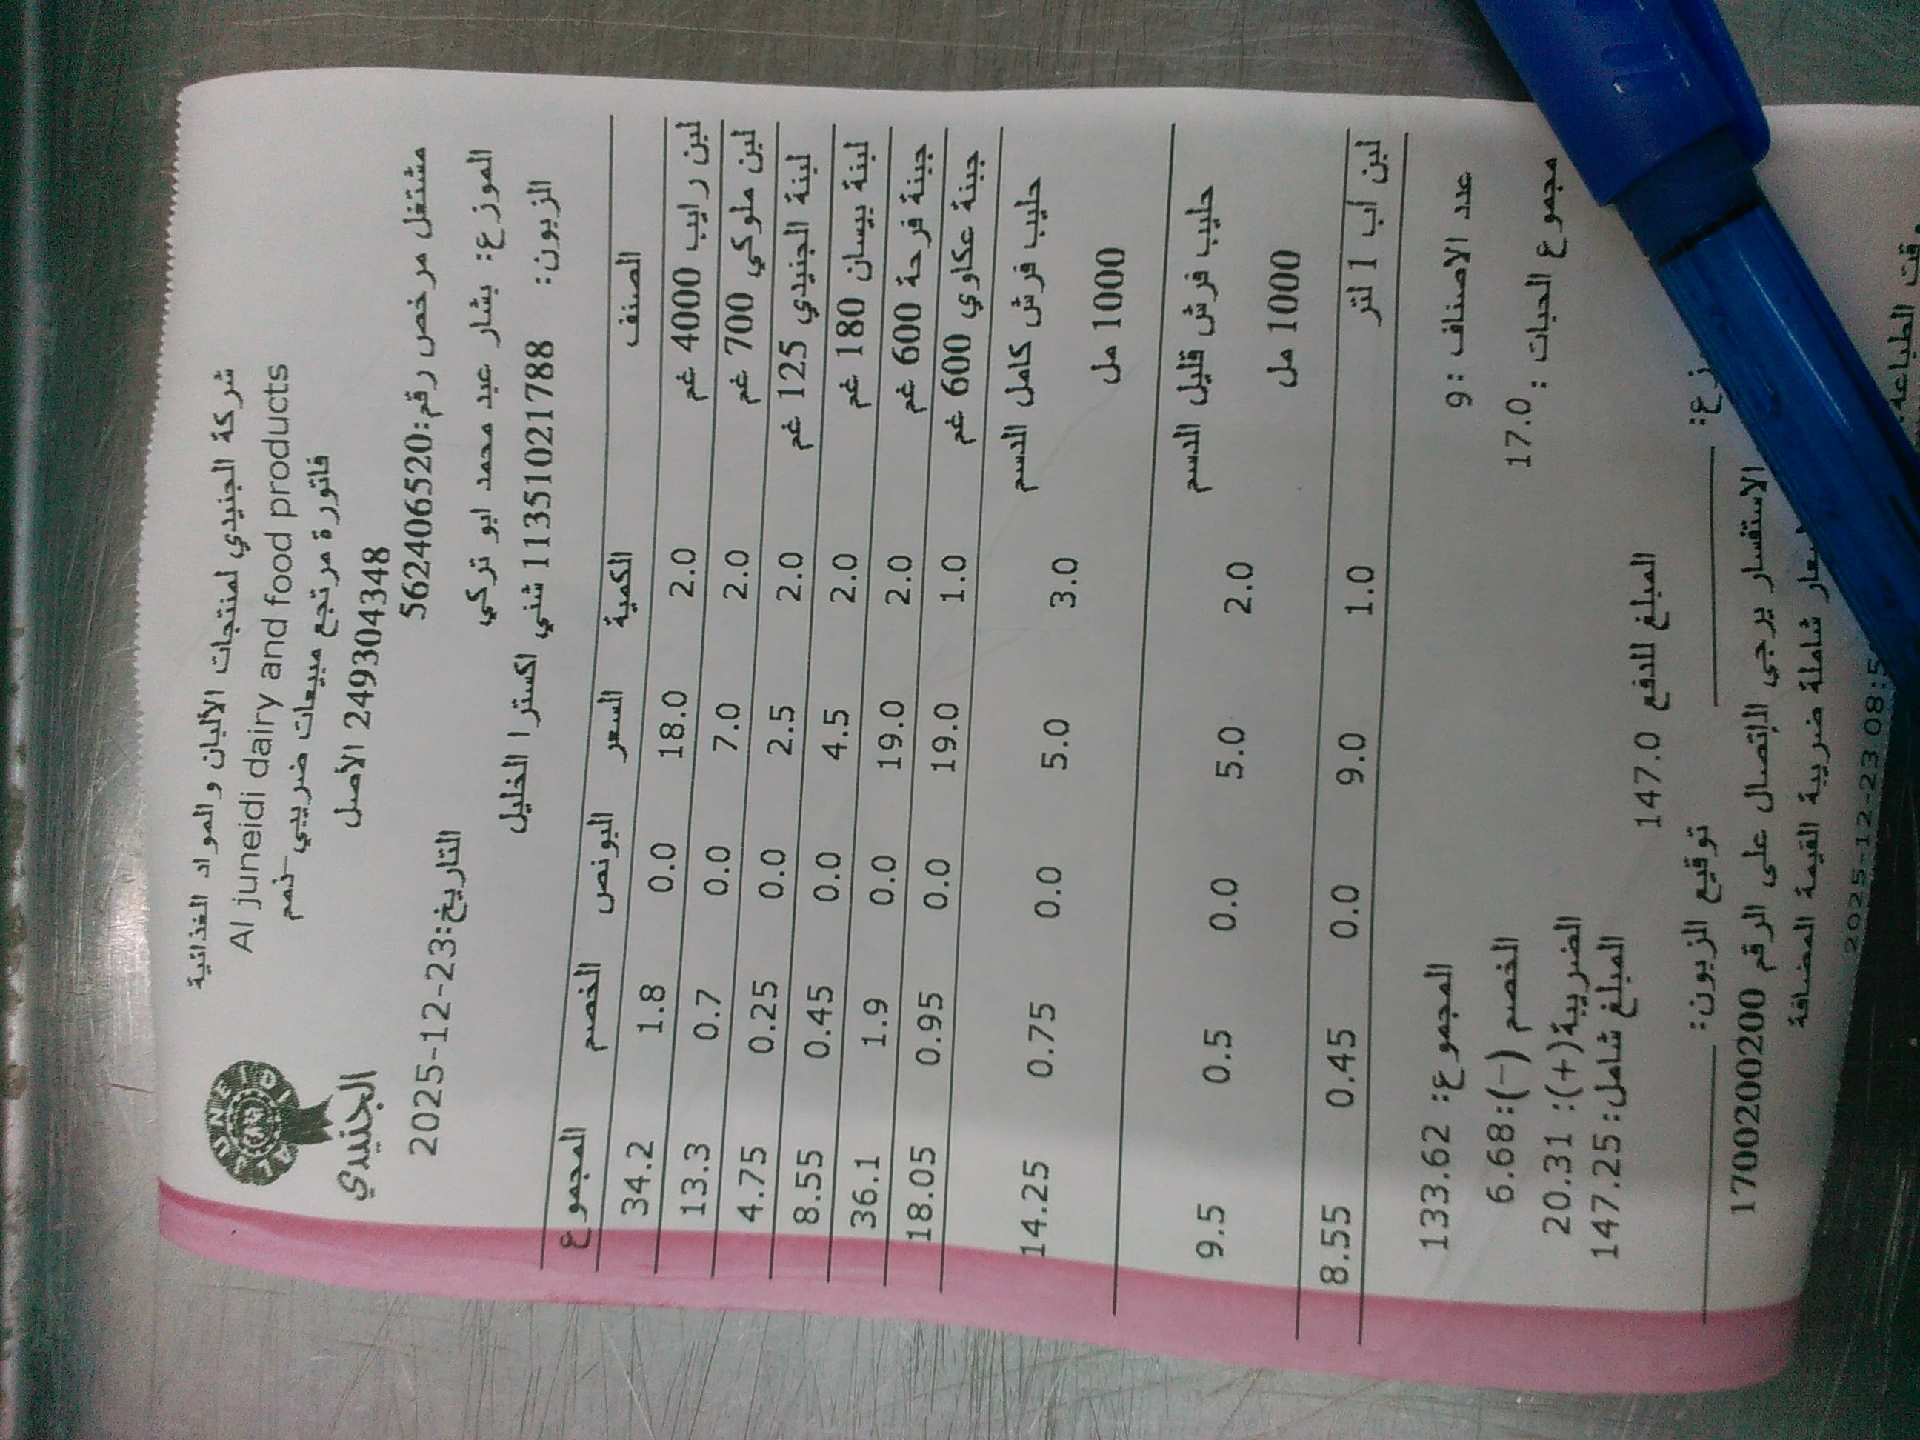 شركة الجنيدي لمنتجات الألبان والمواد الغذائية
Al juneidi dairy and food products
فاتورة مرتجع مبيعات ضريبي-ذمم
249304348 الأصل
AL JUNEIDI
الجنيدي
مشتغل مرخص رقم:562406520
التاريخ:2025-12-23
الموزع: بشار عبد محمد ابو تركي
الزبون: 11351021788 شني اكسترا الخليل
الصنف الكمية السعر البونص الخصم المجموع
لبن رايب 4000 غم 2.0 18.0 0.0 1.8 34.2
لبن ملوكي 700 غم 2.0 7.0 0.0 0.7 13.3
لبنة الجنيدي 125 غم 2.0 2.5 0.0 0.25 4.75
لبنة بيسان 180 غم 2.0 4.5 0.0 0.45 8.55
جبنة فرحة 600 غم 2.0 19.0 0.0 1.9 36.1
جبنة عكاوي 600 غم 1.0 19.0 0.0 0.95 18.05
حليب فرش كامل الدسم 3.0 5.0 0.0 0.75 14.25
1000 مل
حليب فرش قليل الدسم 2.0 5.0 0.0 0.5 9.5
1000 مل
لبن اب 1 لتر 1.0 9.0 0.0 0.45 8.55
عدد الاصناف :9 المجموع: 133.62
مجموع الحبات : 17.0 الخصم (-):6.68
الضريبة(+): 20.31
المبلغ شامل: 147.25
المبلغ للدفع 147.0
توقيع الزبون:
الاستفسار يرجى الإتصال على الرقم 1700200200
شاملة ضريبة القيمة المضافة
وقت الطباعة 2025-12-23 08:5